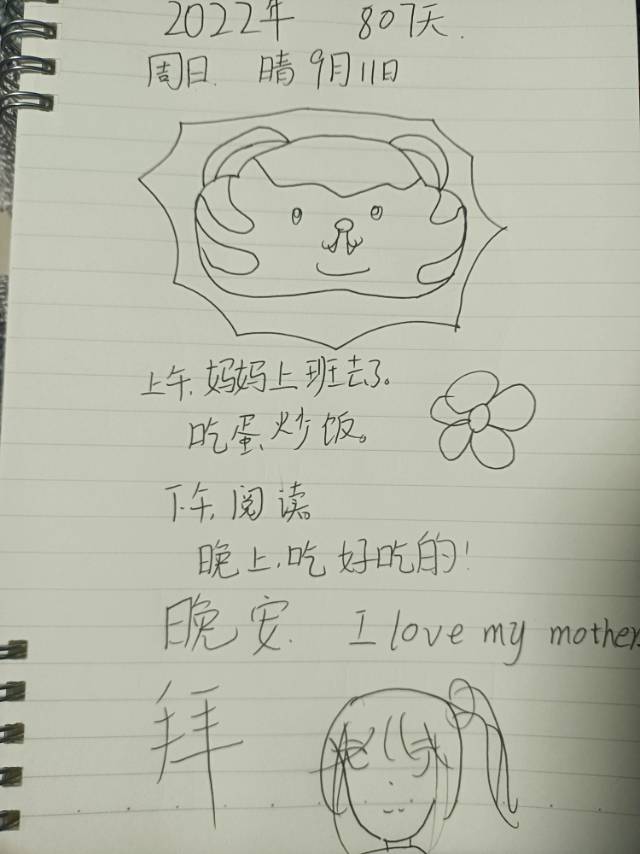 2022年 807天.
周日. 晴 9月11日
上午, 妈妈上班去了。
吃蛋炒饭。
下午, 阅读。
晚上, 吃好吃的!
晚安. I love my mother
拜